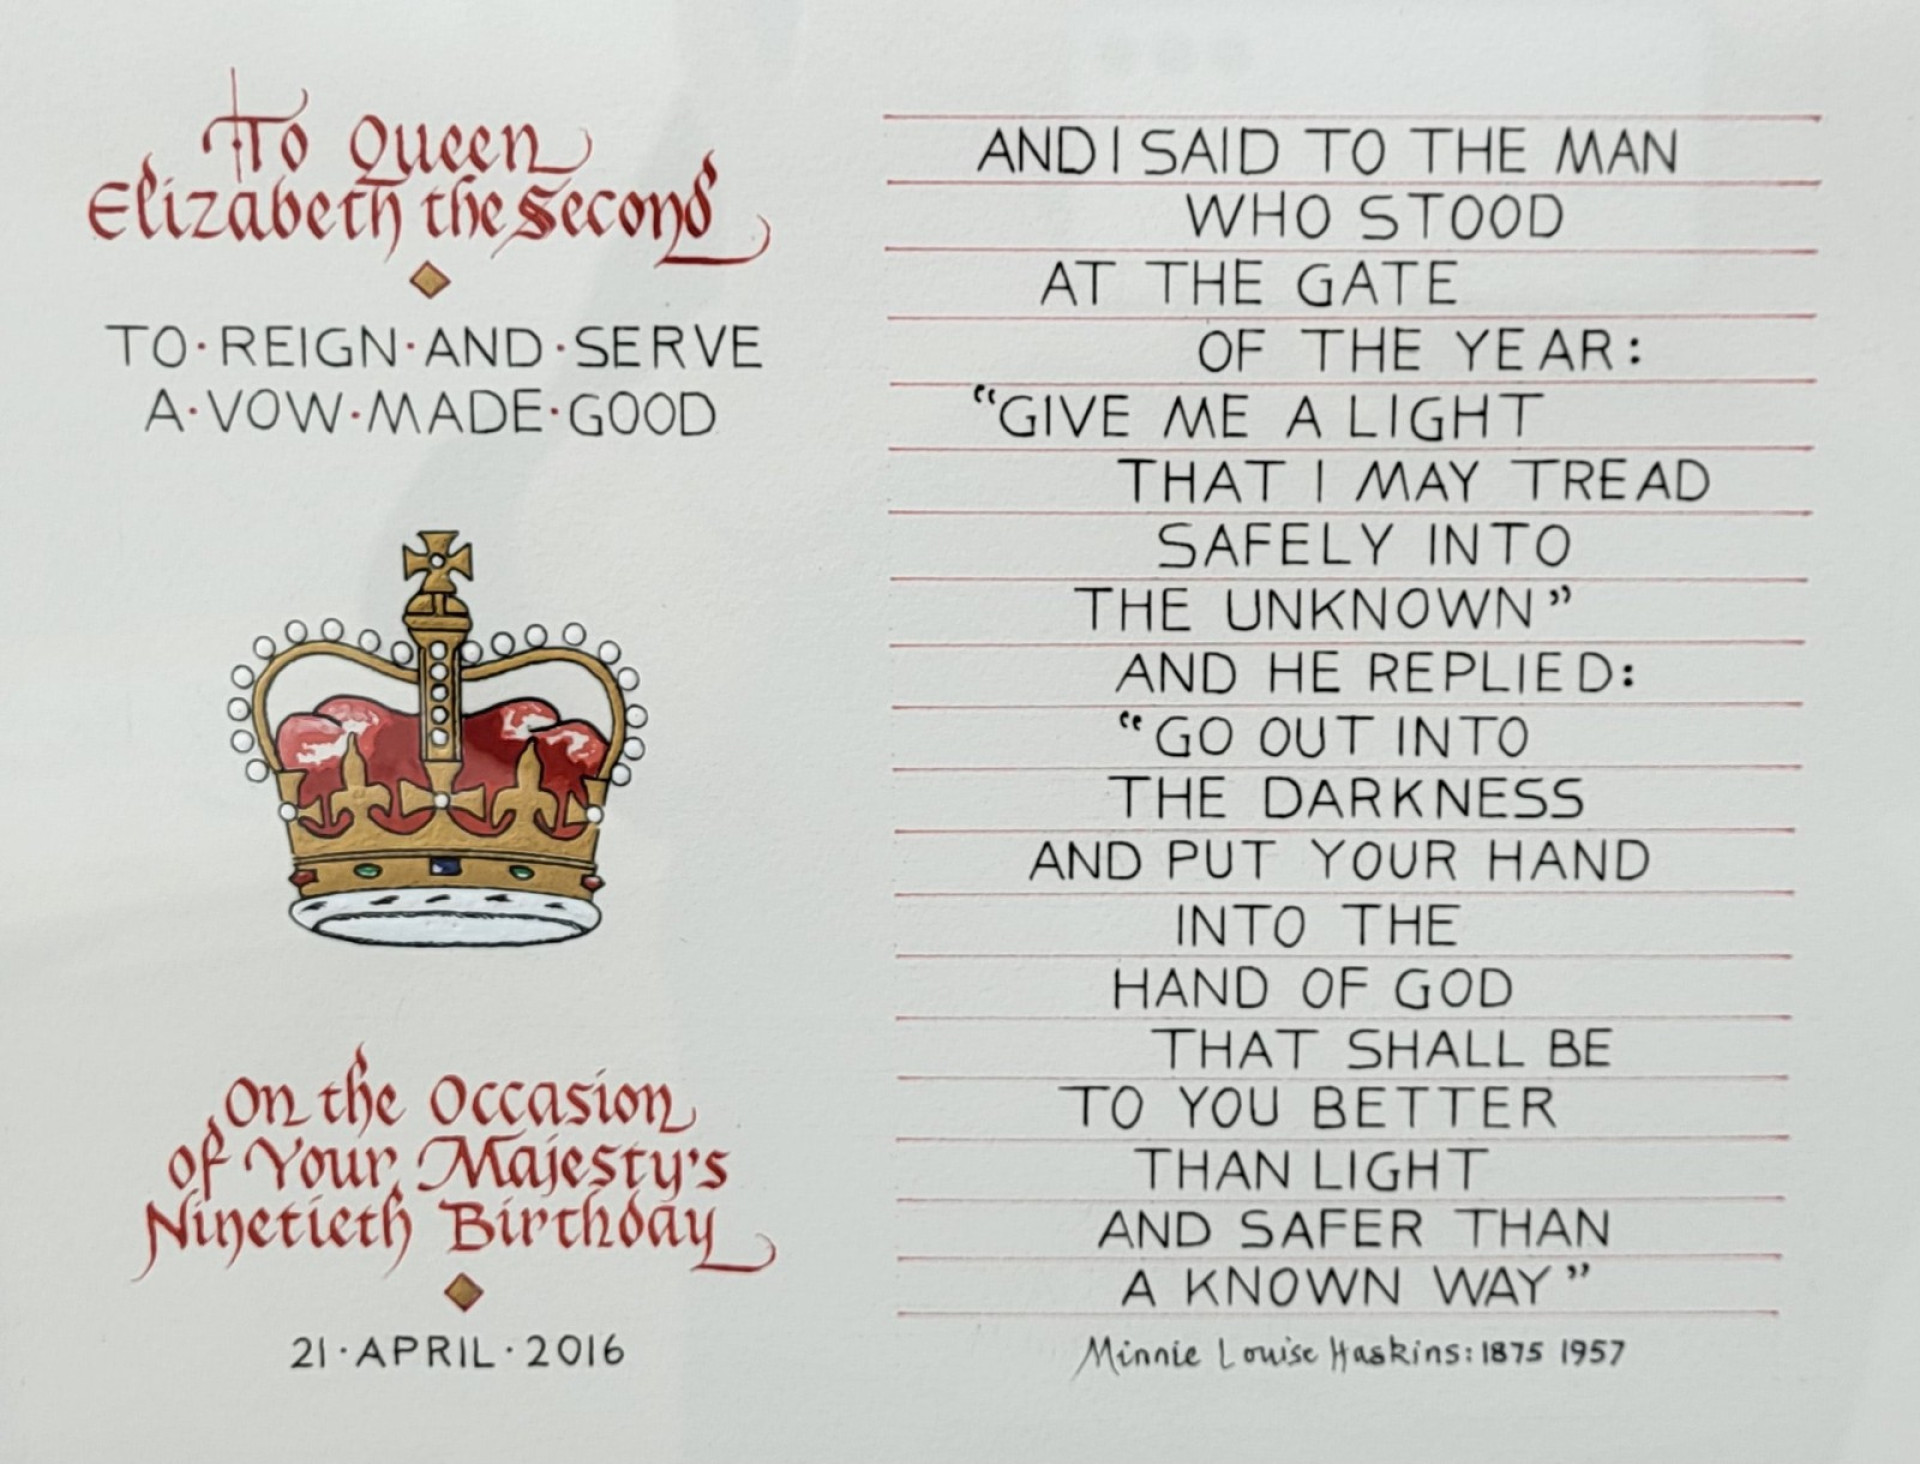 To Queen
Elizabeth the Second
TO·REIGN·AND·SERVE
A·VOW·MADE·GOOD
On the Occasion
of Your Majesty's
Ninetieth Birthday
21·APRIL·2016
AND I SAID TO THE MAN
WHO STOOD
AT THE GATE
OF THE YEAR:
“GIVE ME A LIGHT
THAT I MAY TREAD
SAFELY INTO
THE UNKNOWN”
AND HE REPLIED:
“GO OUT INTO
THE DARKNESS
AND PUT YOUR HAND
INTO THE
HAND OF GOD
THAT SHALL BE
TO YOU BETTER
THAN LIGHT
AND SAFER THAN
A KNOWN WAY”
Minnie Louise Haskins: 1875 1957